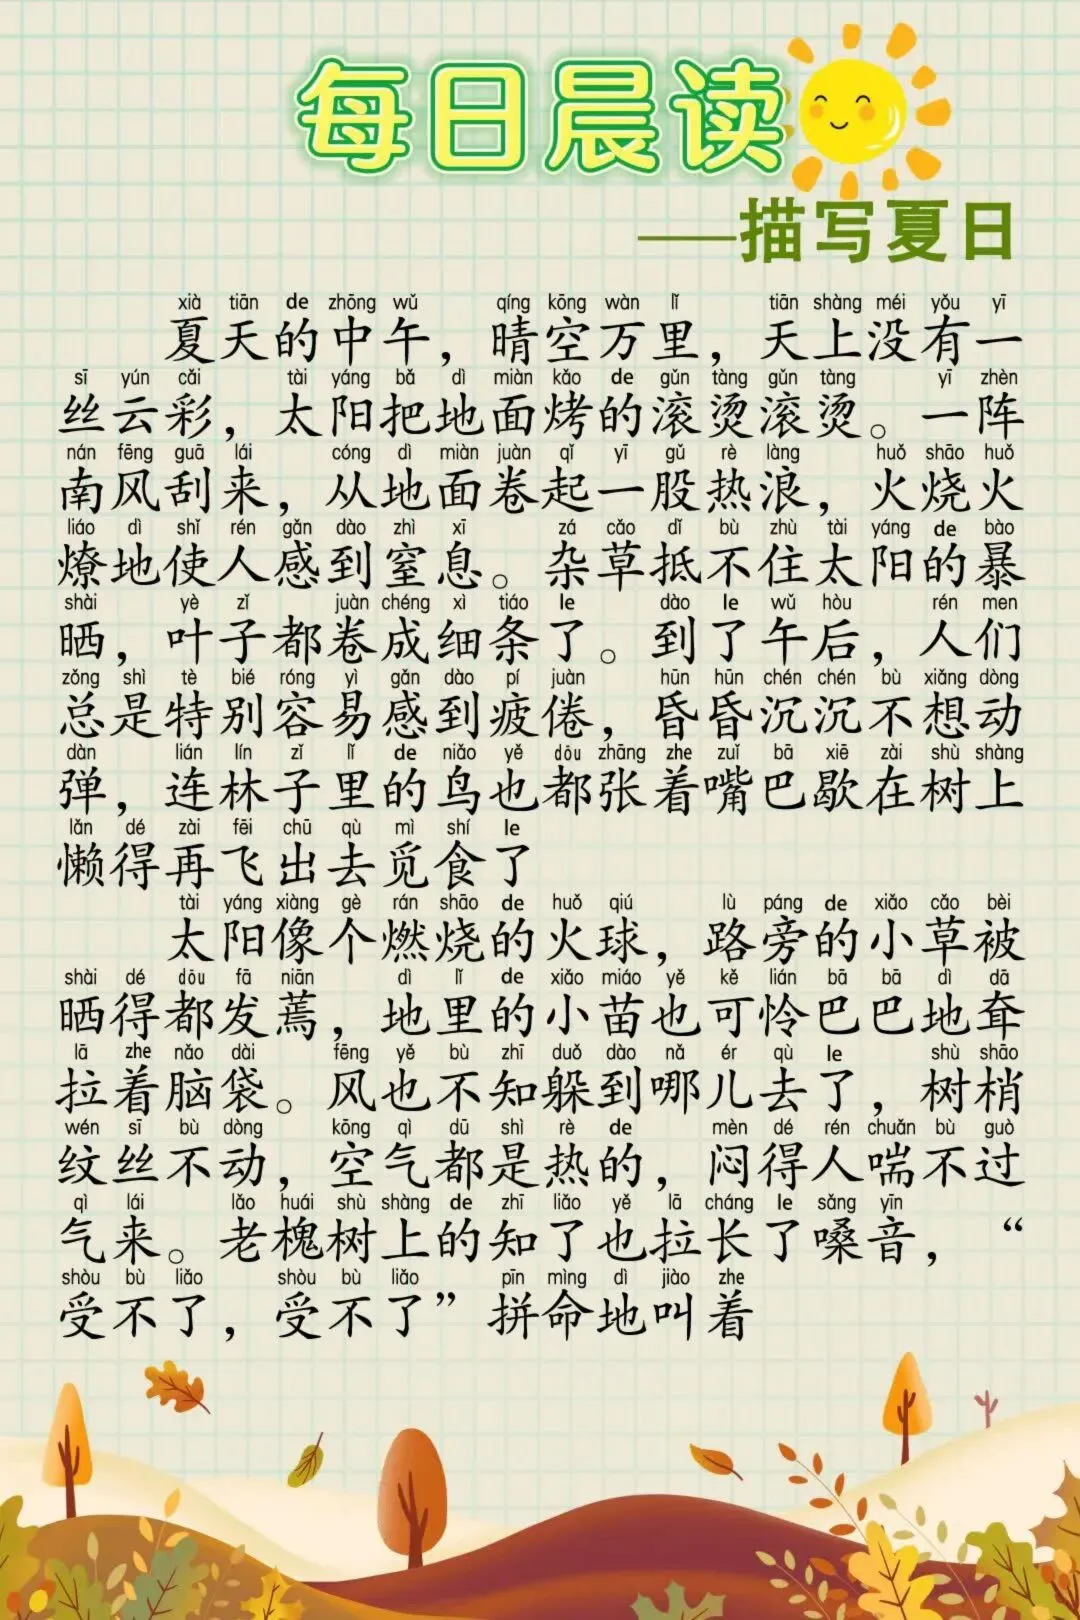 每日晨读
——描写夏日
xià tiān de zhōng wǔ qíng kōng wàn lǐ tiān shàng méi yǒu yī
夏天的中午，晴空万里，天上没有一
sī yún cǎi tài yáng bǎ dì miàn kǎo de gǔn tàng gǔn tàng yī zhèn
丝云彩，太阳把地面烤的滚烫滚烫。一阵
nán fēng guā lái cóng dì miàn juàn qǐ yī gǔ rè làng huǒ shāo huǒ
南风刮来，从地面卷起一股热浪，火烧火
liáo dì shǐ rén gǎn dào zhì xī zá cǎo dǐ bù zhù tài yáng de bào
燎地使人感到窒息。杂草抵不住太阳的暴
shài yè zǐ juàn chéng xì tiáo le dào le wǔ hòu rén men
晒，叶子都卷成细条了。到了午后，人们
zǒng shì tè bié róng yì gǎn dào pí juàn hūn hūn chén chén bù xiǎng dòng
总是特别容易感到疲倦，昏昏沉沉不想动
dàn lián lín zǐ lǐ de niǎo yě dōu zhāng zhe zuǐ bā xiē zài shù shàng
弹，连林子里的鸟也都张着嘴巴歇在树上
lǎn dé zài fēi chū qù mì shí le
懒得再飞出去觅食了
tài yáng xiàng gè rán shāo de huǒ qiú lù páng de xiǎo cǎo bèi
太阳像个燃烧的火球，路旁的小草被
shài dé dōu fā niān dì lǐ de xiǎo miáo yě kě lián bā bā dì dā
晒得都发蔫，地里的小苗也可怜巴巴地耷
lā zhe nǎo dài fēng yě bù zhī duǒ dào nǎ ér qù le shù shāo
拉着脑袋。风也不知躲到哪儿去了，树梢
wén sī bù dòng kōng qì dū shì rè de mèn dé rén chuǎn bù guò
纹丝不动，空气都是热的，闷得人喘不过
qì lái lǎo huái shù shàng de zhī liǎo yě lā cháng le sǎng yīn
气来。老槐树上的知了也拉长了嗓音，“
shòu bù liǎo shòu bù liǎo pīn mìng dì jiào zhe
受不了，受不了”拼命地叫着